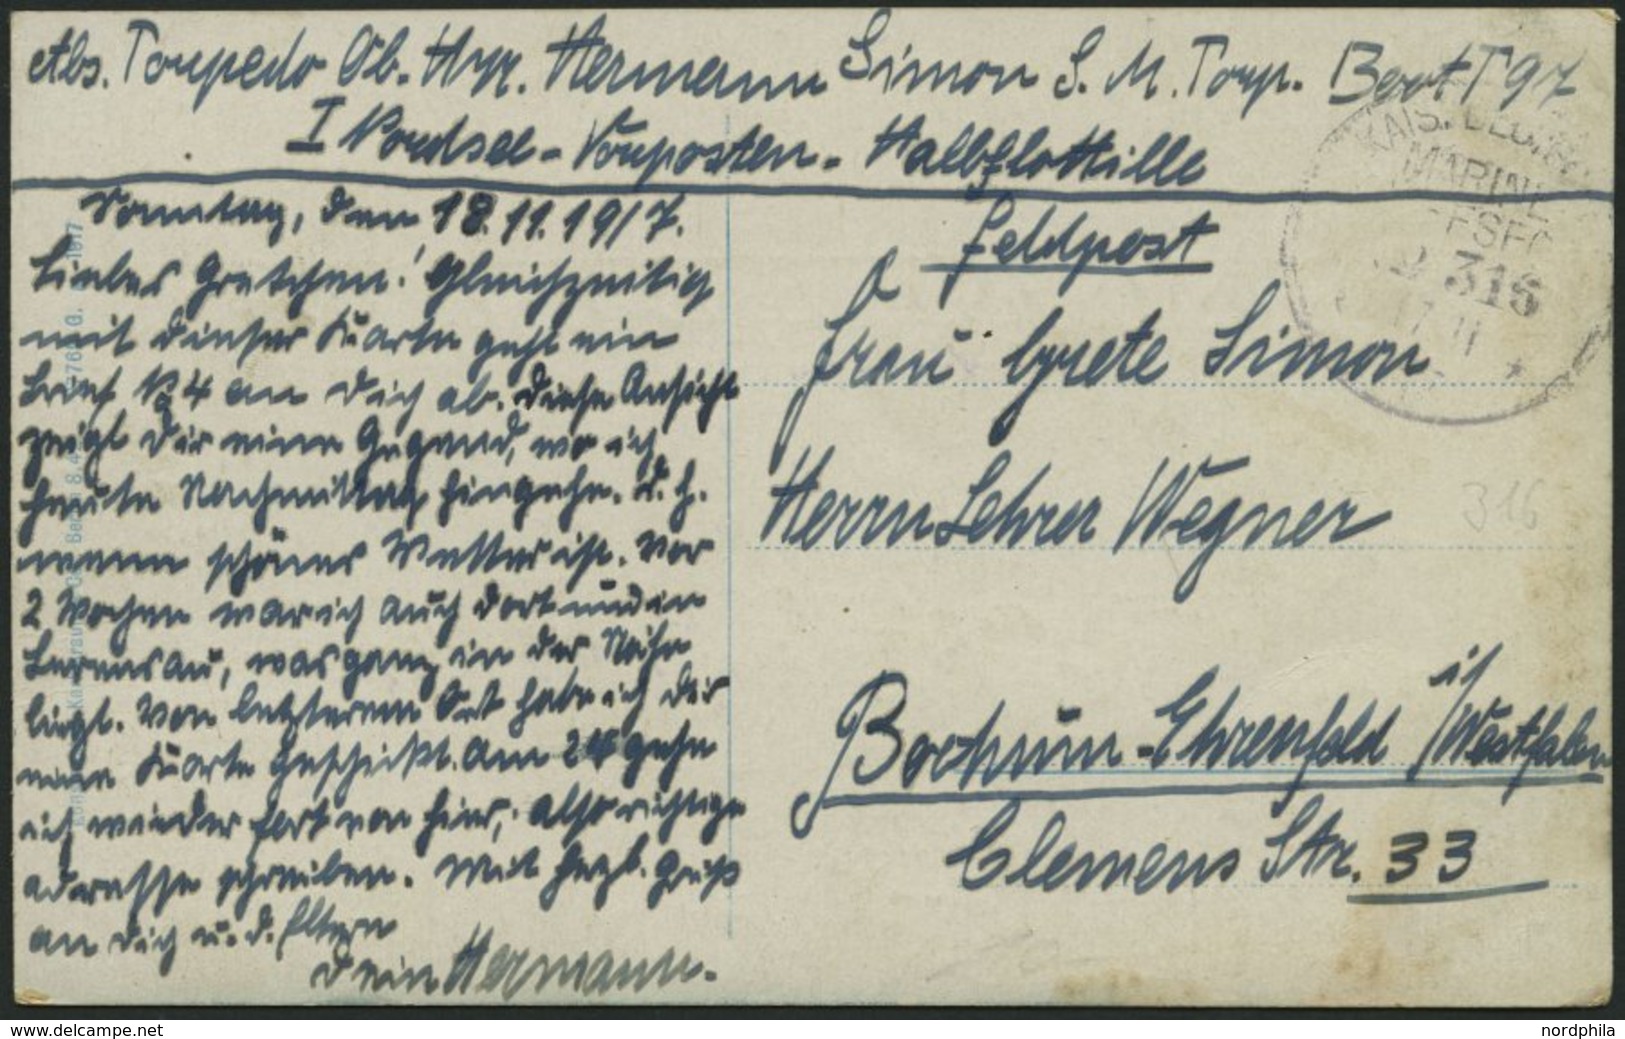 Abs. Torpedo Ob. Hzr. Hermann Simon S. M. Torp. Boot T 97
I Nordsee-Vorposten-Halbflottille
Feldpost
KAIS. DEUTSCHE
MARINE
316
17 11
Sonntag, den 18.11.1917.
Liebes Gretchen! Gleichzeitig
mit dieser Karte geht ein
Brief N 4 an Dich ab. Diese Ansicht
zeigt Dir eine Gegend, wo ich
heute Nachmittag hingehe. d. h.
wenn schönes Wetter ist. Vor
2 Wochen war ich auch dort und in
was ganz in der Nähe
liegt. Von letzterem Ort habe ich Dir
eine Karte geschickt. Am 24 gehe
ich wieder fort von hier, also richtige
adresse schreiben. Mit herzl. Gruß
an Dich u. d. Eltern
Dein Hermann.
Frau Grete Simon
Herrn Lehrer Wegner
316
Bochum-Ehrenfeld i/Westfalen
Clemens Str. 33
www.delcampe.net
nordphila